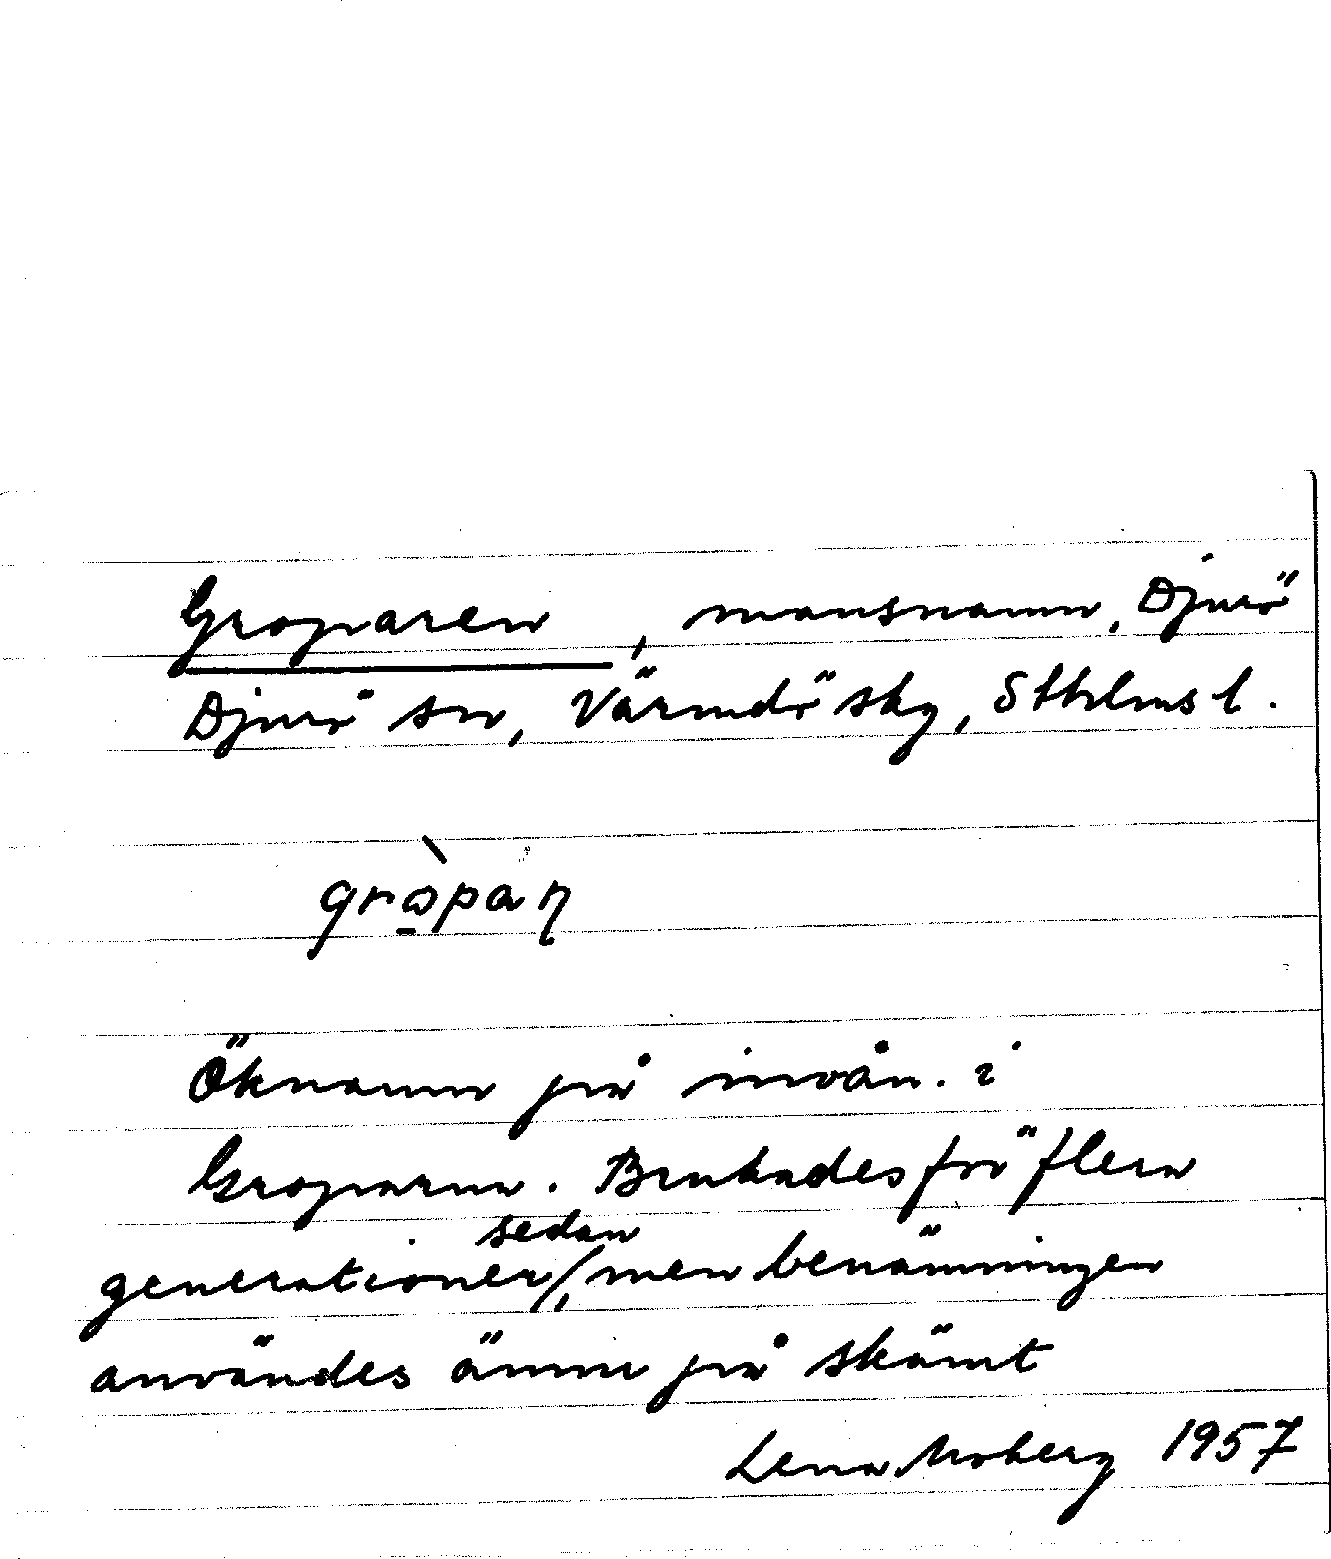 Groparen, mansnamn, Djurö
Djurö sn, Värmdö skg, Sthlms l.
gròpaṇ
Öknamn på invån. i
Groparna. Brukades för flera
generationer sedan, men benämningen
användes ännu på skämt
Lena Moberg 1957